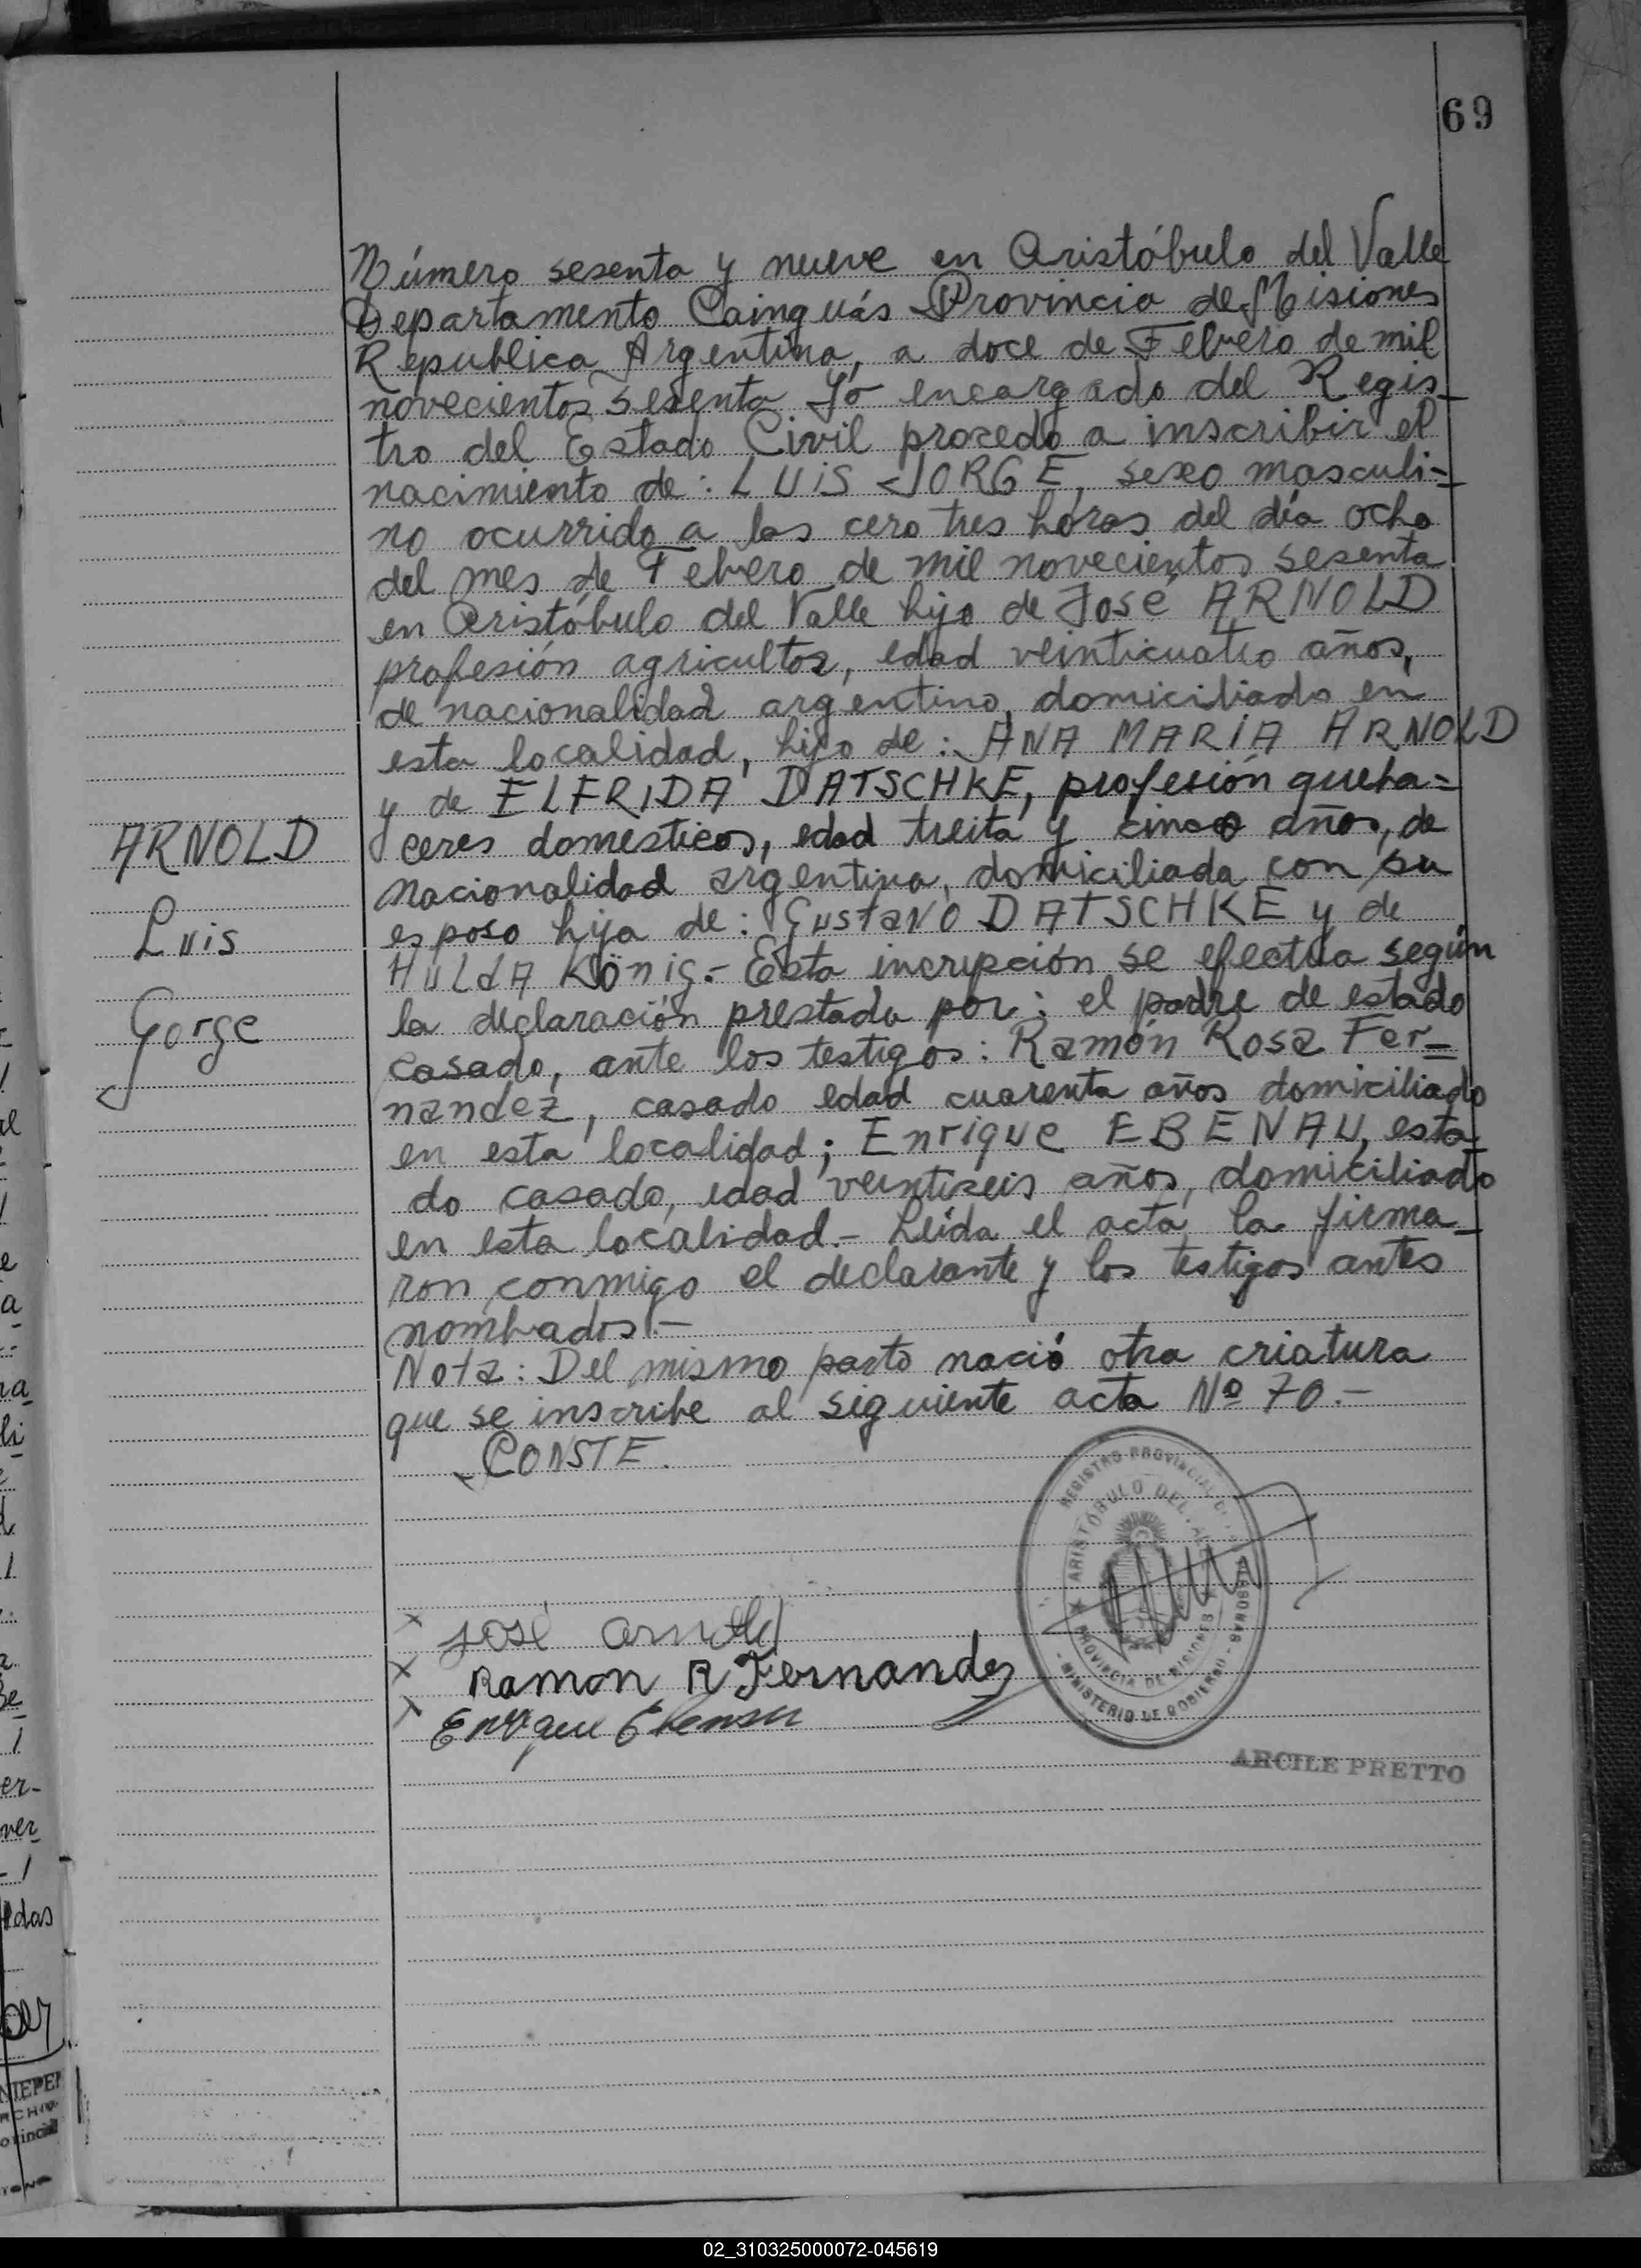 69
Número sesenta y nueve en Aristóbulo del Valle
Departamento Cainguás Provincia de Misiones
Republica Argentina, a doce de Febrero de mil
novecientos sesenta Yo encargado del Regis-
tro del Estado Civil procedo a inscribir el
nacimiento de: LUIS JORGE, sexo masculi=
no ocurrido a las cero tres horas del día ocho
del mes de Febrero de mil novecientos sesenta
en Aristóbulo del Valle hijo de José ARNOLD
profesión agricultor, edad veinticuatro años,
de nacionalidad argentino, domiciliado en
esta localidad, hijo de: ANA MARIA ARNOLD
y de ELFRIDA DATSCHKE, profesión queha=
ceres domesticos, edad treita y cinco años, de
nacionalidad argentina, domiciliada con su
esposo hija de: Gustavo DATSCHKE y de
HULdA König.- Esta incripción se efectua según
la declaración prestada por: el padre de estado
casado, ante los testigos: Ramón Rosa Fer-
nandez, casado edad cuarenta años domiciliado
en esta localidad; Enrique EBENAU, esta
do casado, edad veintiseis años, domiciliado
en esta localidad.- Leída el acta, la firma-
ron conmigo el declarante y los testigos antes
nombados.-
Nota: Del mismo parto nació otra criatura
que se inscribe al siguiente acta Nº 70.-
CONSTE.
ARNOLD
Luis
Gorge
José Arnold
Ramon R Fernandez
Enrique Ebenau
REGISTRO PROVINCIAL DE LAS PERSONAS
ARISTÓBULO DEL VALLE
PROVINCIA DE MISIONES
MINISTERIO DE GOBIERNO
ARCILE PRETTO
02_310325000072-045619